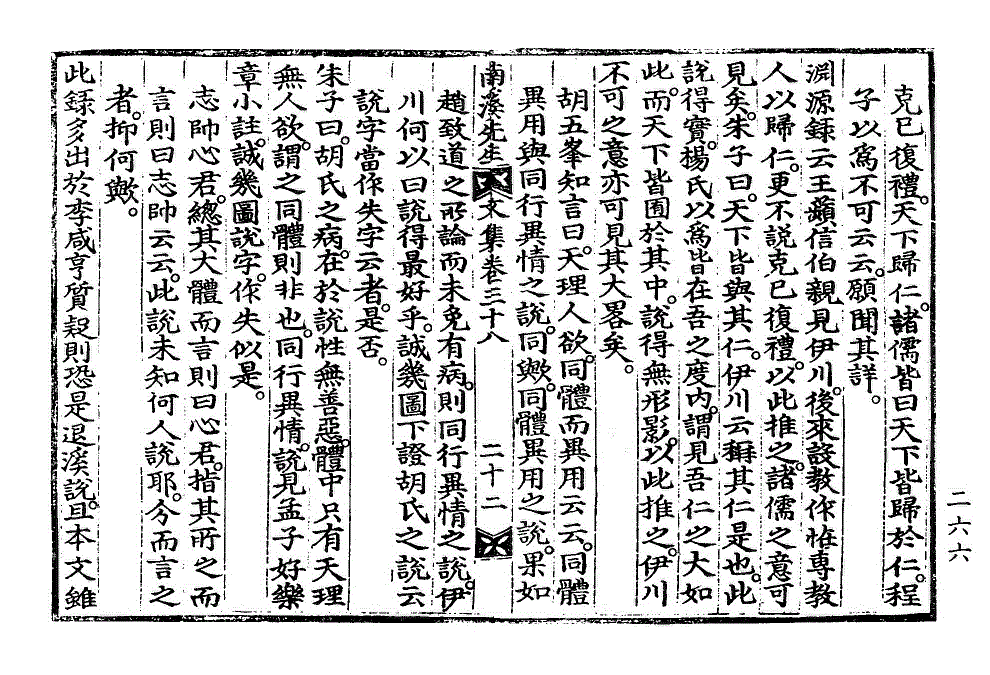 克已復禮。天下歸仁。諸儒皆曰天下皆歸於仁。程
子以爲不可云云。願聞其詳。
淵源錄云王蘋信伯親見伊川。後來設敎作恠專敎
人以歸仁。更不說克已復禮。以此推之。諸儒之意可
見矣。朱子曰。天下皆與其仁。伊川云稱其仁是也。此
說得實。楊氏以爲皆在吾之度內。謂見吾仁之大如
此。而天下皆囿於其中。說得無形影。以此推之。伊川
不可之意亦可見其大畧矣。
胡五峯知言曰。天理人欲。同體而異用云云。同體
異用與同行異情之說。同歟。同體異用之說。果如
南溪先生文集卷三十八 二十二
趙致道之所論而未免有病。則同行異情之說。伊
川何以曰說得最好乎。誠幾圖下證胡氏之說云
說字當作失字云者。是否。
朱子曰。胡氏之病。在於說性無善惡。體中只有天理
無人欲。謂之同體則非也。同行異情。說見孟子好樂
章小註。誠幾圖說字。作失似是。
志帥心君。總其大體而言則曰心君。指其所之而
言則曰志帥云云。此說未知何人說耶。今而言之
者。抑何歟。
此錄多出於李咸亨質疑則恐是退溪說。且本文雖
二六六